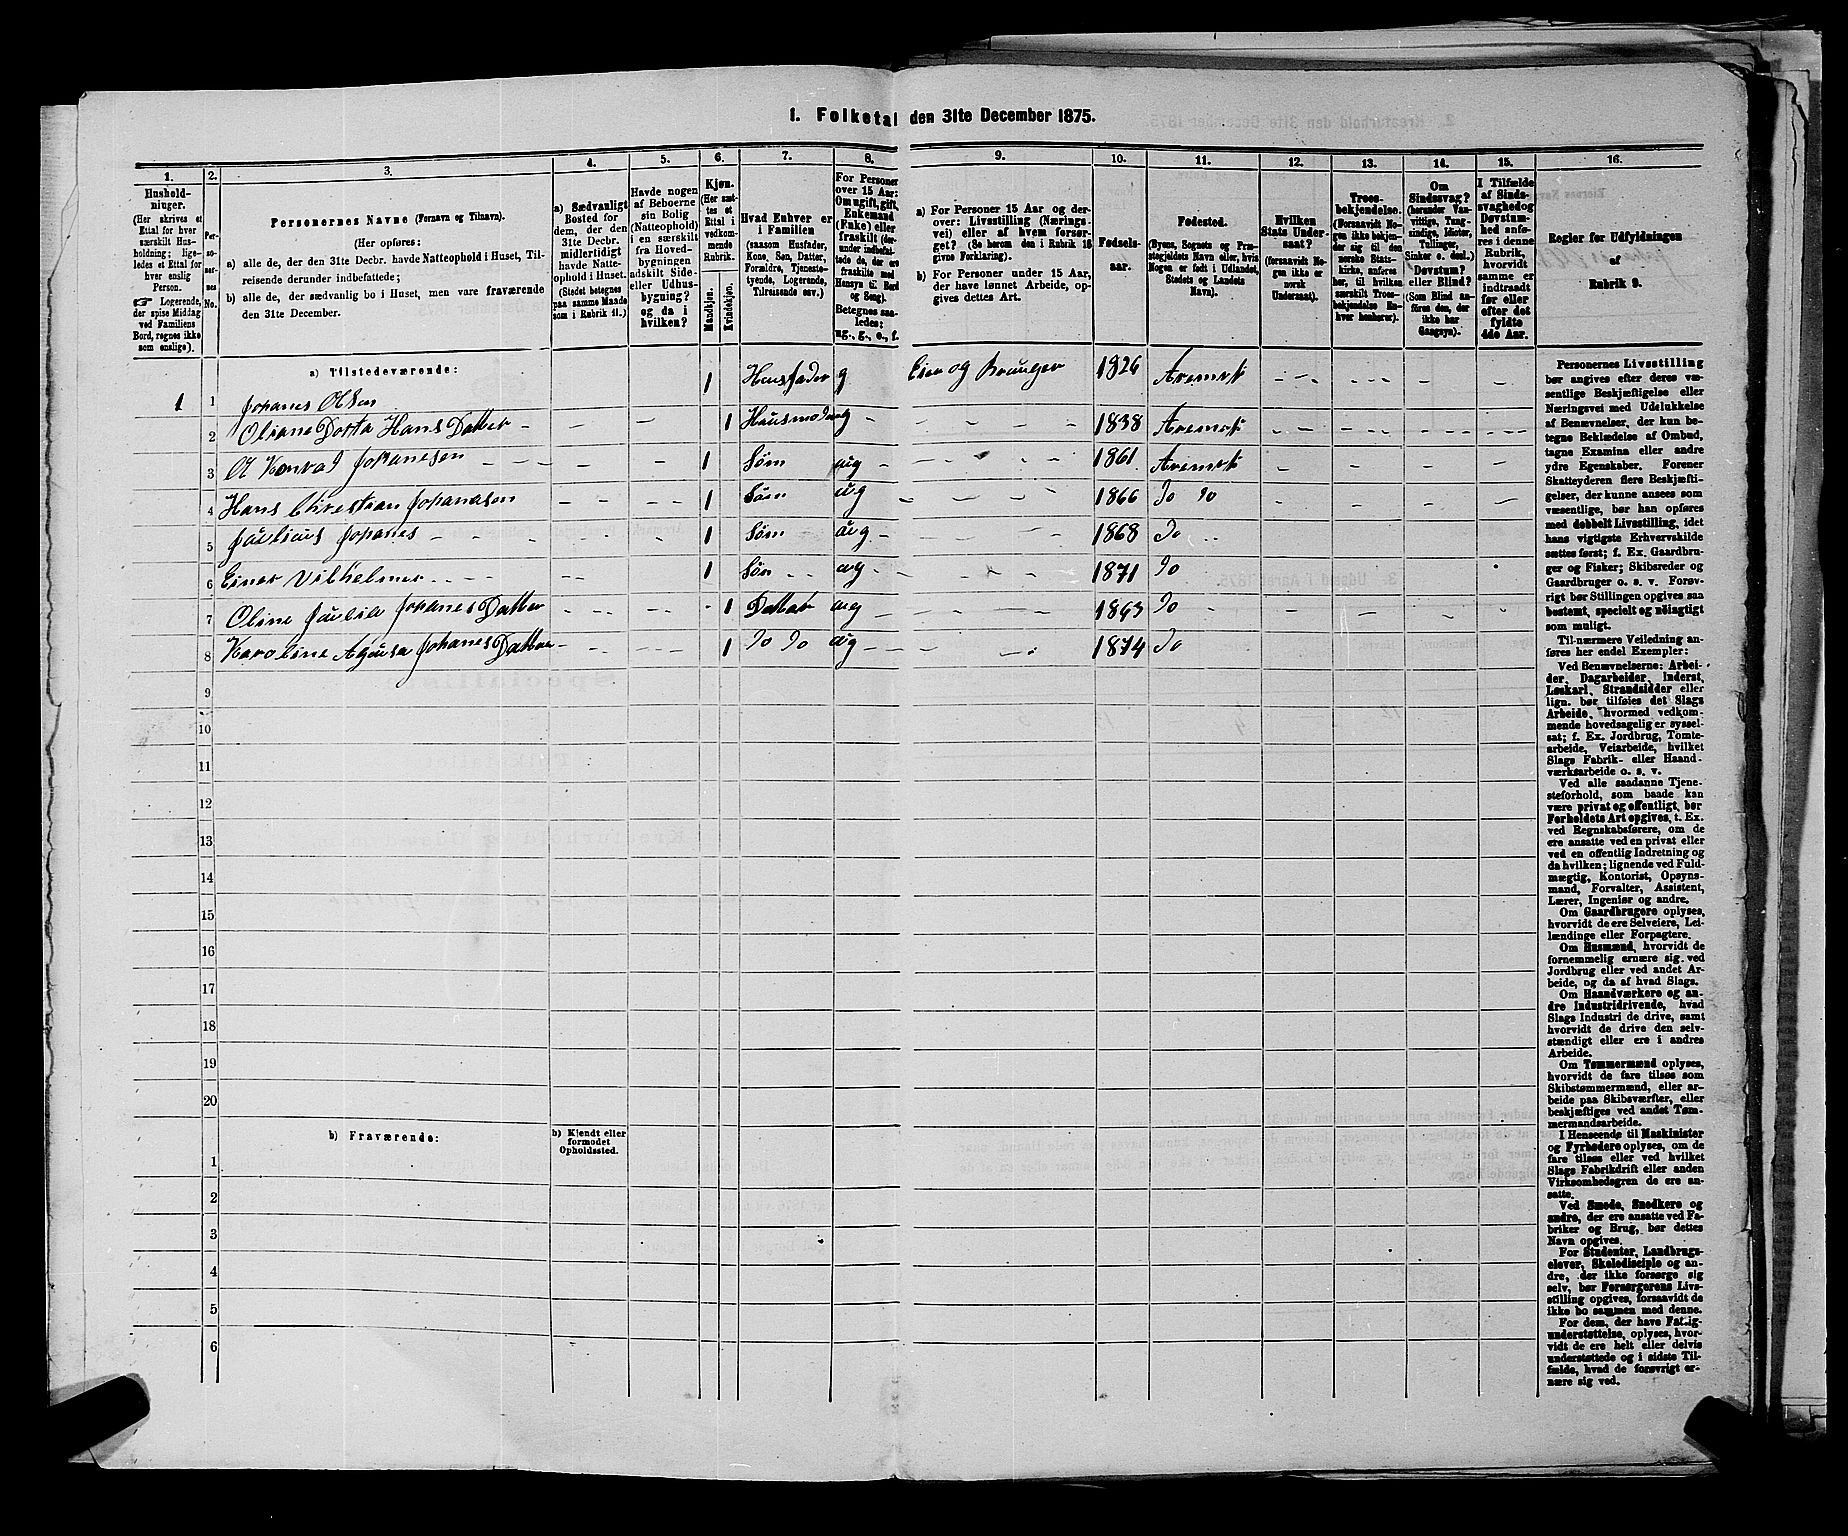 1. Folketal den 31te December 1875.
1.
2.
3.
4.
5.
6.
7.
8.
9.
10.
11.
12.
13.
14.
15.
16.
Hushold-
ninger.
(Her skrives et
Ettal for hver
særskilt Hus-
holdning; lige-
ledes et Ettal for
hver enslig
Person.
☞ Logerende,
der spise Middag
ved Familiens
Bord, regnes ikke
som enslige).
Per-
soner-
nes
No.
Personernes Navne (Fornavn og Tilnavn).
(Her opføres:
a) alle de, der den 31te Decbr. havde Natteophold i Huset, Til-
reisende derunder indbefattede;
b) alle de, der sædvanlig bo i Huset, men vare fraværende
den 31te December.
a) Sædvanligt
Bosted for
dem, der den
31te Decbr.
midlertidigt
havde Natte-
ophold i Huset.
(Stedet betegnes
paa samme Maade
som i Rubrik 11.)
Havde nogen
af Beboerne
sin Bolig
(Natteophold)
i en særskilt
fra Hoved-
bygningen
adskilt Side-
eller Udhus-
bygning?
og da i
hvilken?
Kjøn.
(Her sæt-
tes et
Ettal i
vedkom-
mende
Rubrik.
Mandkjøn.
Kvindekjøn.
Hvad Enhver er
i Familien
(saasom Husfader,
Kone, Søn, Datter,
Forældre, Tjeneste-
tyende, Logerende,
Tilreisende osv.)
For Personer
over 15 Aar:
Om ugift, gift,
Enkemand
(Enke) eller
fraskilt (der-
under indbefat-
tede de, der ere
fraskilte med
Hensyn til Bord
og Seng).
Betegnes saa-
ledes:
ug., g., e., f.
a) For Personer 15 Aar og der-
over: Livsstilling (Nærings-
vei) eller af hvem forsør-
get? (Se herom den i Rubrik 16
givne Forklaring).
b) For Personer under 15 Aar,
der have lønnet Arbeide, op-
gives dettes Art.
Fødsels-
aar.
Fødested.
(Byens, Sognets og Præ-
stegjeldets Navn eller, hvis
Nogen er født i Udlandet,
Stedets og Landets
Navn).
Hvilken
Stats Under-
saat?
(forsaavidt No-
gen ikke er
norsk
Undersaat).
Troes-
bekjendelse.
(Forsaavidt No-
gen ikke bekjen-
der sig til den
norske Stats-
kirke, anføres
her, til hvilken
særskilt Troes-
bekjendelse En-
hver henhører).
Om
Sindssvag?
(herunder Van-
vittige, Tung-
sindige, Idioter,
Tullinger,
Sinker o. desl.)
Døvstum?
eller Blind?
(Som Blind an-
føres den, der
ikke har
Gangsyn).
I Tilfælde
af Sinds-
svaghed og
Døvstum-
hed anfø-
res i denne
Rubrik,
hvorvidt
samme er
indtraadt
før eller
efter det
fyldte
4de Aar.
Regler for Udfyldningen
af
Rubrik 9.
a) Tilstedeværende:
1 1 Johanes Olsen 1 Husfader g Eier og Bruuger 1826 Aremrk
2 Oliane Dorta Hans Datter 1 Husmoder g 1838 Aremrk
3 Konrad Johanesen 1 Søn ug 1861 Aremrk
4 Hans Christian Johanesen 1 Søn ug 1866 Do Do
5 Julius Johanes 1 Søn ug 1868 Do
6 Einer Vilhelmer 1 Søn ug 1871 Do
7 Oline Julie Johanes Datter 1 Datter ug 1863 Do
8 Karoline Johanes Datter 1 Do Do ug 1874 Do
9
10
11
12
13
14
15
16
17
18
19
20
b) Fraværende:
b) Kjendt eller
formodet
Opholdssted.
1
2
3
4
5
6
Personernes Livsstilling
bør angives efter deres væ-
sentlige Beskjæftigelse eller
Næringsvei med Udelukkelse
af Benævnelser, der kun be-
tegne Beklædelse af Ombud,
tagne Examina eller andre
ydre Egenskaber. Forener
Skatteyderen flere Beskjæfti-
gelser, der kunne ansees som
væsentlige, bør han opføres
med dobbelt Livsstilling, idet
hans vigtigste Erhvervskilde
sættes først; f. Ex. Gaardbru-
ger og Fisker; Skibsreder og
Gaardbruger o. s. v. Forøv-
rigt bør Stillingen opgives saa
bestemt, specielt og nöiagtigt
som muligt.
Til nærmere Veiledning an-
føres her endel Exempler:
Ved Benævnelserne: Arbei-
der, Dagarbeider, Inderst,
Løskarl, Strandsidder eller
lign. bør tilføies det Slags
Arbeide, hvormed vedkom-
mende hovedsagelig er syssel-
sat; f. Ex. Jordbrug, Tomte-
arbeide, Veiarbeide, hvilket
Slags Fabrik- eller Haand-
værksarbeide o. s. v.
Ved alle saadanne Tjene-
steforhold, som baade kan
være privat og offentligt, bør
Forholdets Art opgives, t. Ex.
ved Regnskabsførere, om de
ere ansatte ved en privat eller
ved en offentlig Indretning og
da hvilken; lignende ved Fuld-
mægtig, Kontorist, Opsyns-
mand, Forvalter, Assistent,
Lærer, Ingeniør og andre.
Om Gaardbrugere oplyses,
hvorvidt de ere Selveiere, Lei-
lændinge eller Forpagtere.
Om Husmænd, hvorvidt de
fornemmelig ernære sig ved
Jordbrug eller ved andet Ar-
beide, og da af hvad Slags.
Om Haandværkere og an-
dre Industridrivende, hvad
Slags Industri de drive, samt
hvorvidt de drive den selv-
stændigt eller ere i andres
Arbeide.
Om Tømmermænd oplyses,
hvorvidt de fare tilsøs som
Skibstømmermænd, eller ar-
beide paa Skibsværfter, eller
beskjæftiges ved andet Tøm-
mermandsarbeide.
I Henseende til Maskinister
og Fyrbødere oplyses, om de
fare tilsøs eller ved hvilket
Slags Fabrikdrift eller anden
Virksomhedsgren de ere an-
satte.
Ved Smede, Snedkere og
andre, der ere ansatte ved Fa-
briker og Brug, bør dettes
Navn opgives.
For Studenter, Landbrugs-
elever, Skoledisciple og an-
dre, der ikke forsørge sig
selv, bør Forsørgerens Livs-
stilling opgives, forsaavidt de
ikke bo sammen med denne.
For dem, der have Fattig-
understøttelse, oplyses, hvor-
vidt de ere helt eller delvis
understøttede og i sidste Til-
fælde, hvad de forøvrigt er-
nære sig ved.